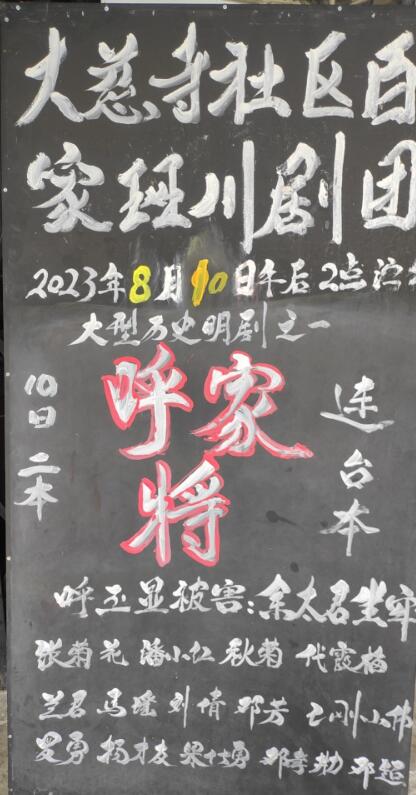 大慈寺社区百
家班川剧团
2023年8月10日午后2点演
大型历史明剧之一
呼家
将
10日二本
连台本
呼丕显被害:佘太君坐牢
张菊花 潘小仁 秋菊 代霞梅
兰君 马瑶 刘倩 邓芳 小伟
吴勇 杨才友 邓孝勤 邓超